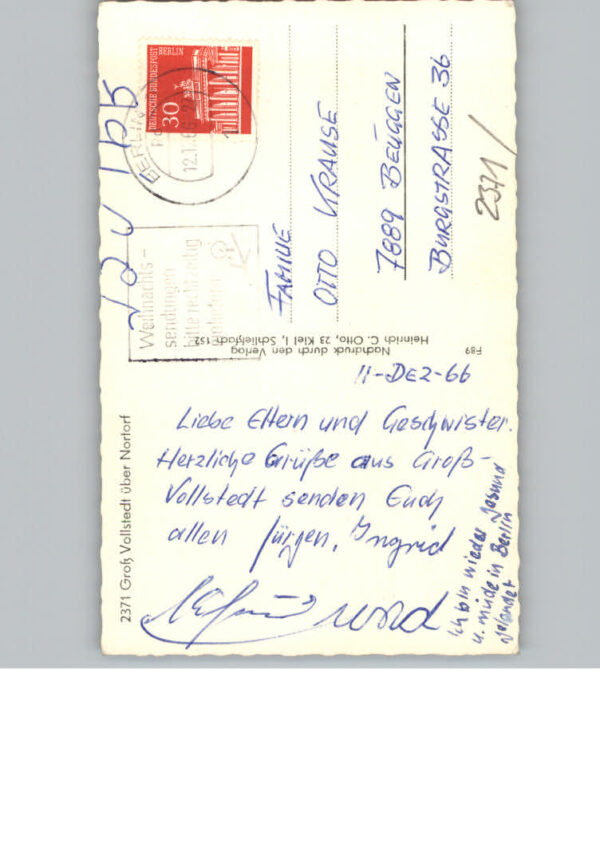 11-DEZ-66
Liebe Eltern und Geschwister.
Herzliche Grüße aus Groß-
Vollstedt senden Euch
allen Jürgen, Ingrid
und
Ich bin wieder gesund
u. müde in Berlin
gelandet
2371 Groß Vollstedt über Nortorf
Nachdruck durch den Verlag
Heinrich C. Otto, 23 Kiel 1, Schließfach 152
F89
DEUTSCHE BUNDESPOST BERLIN
30
BERLIN
12.1 .66
Weihnachts-
sendungen
bitte rechtzeitig
einliefern
FAMILIE
OTTO KRAUSE
7889 BEUGGEN
BURGSTRASSE 36
2371/